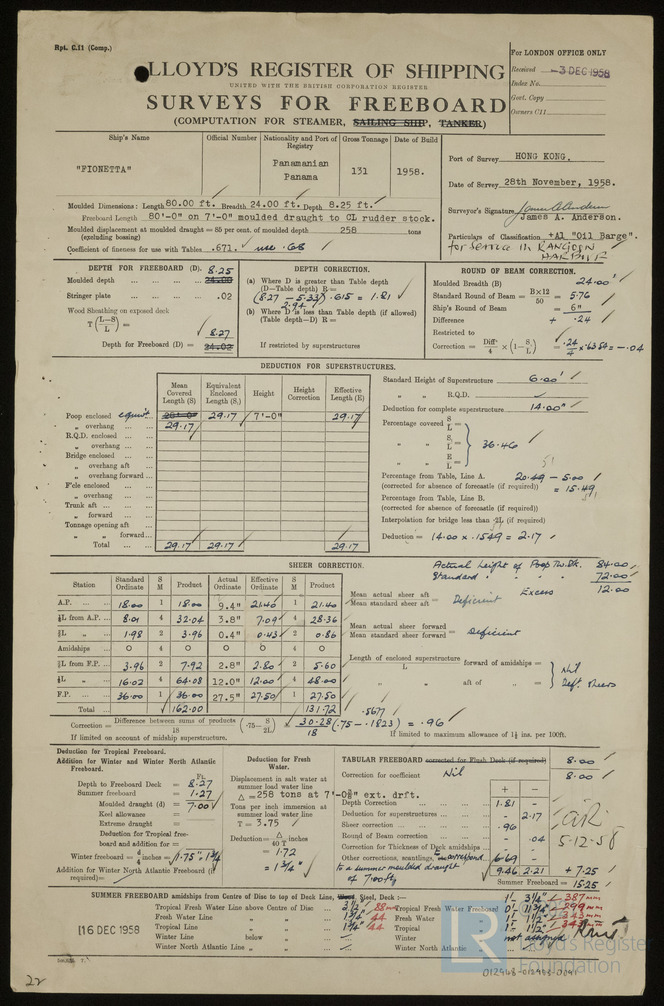 Rpt. C.11 (Comp.)
LLOYD'S REGISTER OF SHIPPING
UNITED WITH THE BRITISH CORPORATION REGISTER
SURVEYS FOR FREEBOARD
(COMPUTATION FOR STEAMER, SAILING SHIP, TANKER)
For LONDON OFFICE ONLY
Received -3 DEC 1958
Index No.
Govt. Copy
Owners C11
Ship's Name Official Number Nationality and Port of Registry Gross Tonnage Date of Build
"FIONETTA" Panamanian Panama 131 1958.
Port of Survey HONG KONG.
Date of Survey 28th November, 1958.
Surveyor's Signature James A. Anderson
James A. Anderson.
Particulars of Classification +A1 "Oil Barge".
for service in RANGOON
Moulded Dimensions: Length 80.00 ft. Breadth 24.00 ft. Depth 8.25 ft.
Freeboard Length 80'-0" on 7'-0" moulded draught to CL rudder stock.
Moulded displacement at moulded draught = 85 per cent. of moulded depth 258 tons
(excluding bossing)
Coefficient of fineness for use with Tables .671. use .68
DEPTH FOR FREEBOARD (D).
8.25
Moulded depth 24.00
Stringer plate .02
Wood Sheathing on exposed deck
T (L-S / L) =
8.27
Depth for Freeboard (D) = 24.02
DEPTH CORRECTION.
(a) Where D is greater than Table depth
(D-Table depth) R =
(8.27 - 5.33) .615 = 1.81
2.94
(b) Where D is less than Table depth (if allowed)
(Table depth-D) R =
If restricted by superstructures
ROUND OF BEAM CORRECTION.
Moulded Breadth (B) 24.00'
Standard Round of Beam = B×12 / 50 = 5.76
Ship's Round of Beam = 6"
Difference + .24
Restricted to
Correction = Diff / 4 × (1 - S₁ / L) = .24 / 4 × .6354 = -.04
DEDUCTION FOR SUPERSTRUCTURES.
Mean Covered Length (S) Equivalent Enclosed Length (S₁) Height Height Correction Effective Length (E)
Poop enclosed equiv. 29.17 7'-0" 29.17
„ overhang 29.17
R.Q.D. enclosed
„ overhang
Bridge enclosed
„ overhang aft
„ overhang forward
F'cle enclosed
„ overhang
Trunk aft
„ forward
Tonnage opening aft
„ „ forward
Total 29.17 29.17 29.17
Standard Height of Superstructure 6.00'
„ „ R.Q.D.
Deduction for complete superstructure 14.00"
Percentage covered S / L =
„ „ S₁ / L = 36.46
„ „ E / L =
Percentage from Table, Line A. 20.49 - 5.00
(corrected for absence of forecastle (if required)) = 15.49
Percentage from Table, Line B.
(corrected for absence of forecastle (if required))
Interpolation for bridge less than .2L (if required)
Deduction = 14.00 x .1549 = 2.17
SHEER CORRECTION.
Station Standard Ordinate S M Product Actual Ordinate Effective Ordinate S M Product
A.P. 18.00 1 18.00 9.4" 21.40 1 21.40
⅙L from A.P. 8.01 4 32.04 3.8" 7.09 4 28.36
⅓L „ 1.98 2 3.96 0.4" 0.43 2 0.86
Amidships 0 4 0 0 0 4 0
⅓L from F.P. 3.96 2 7.92 2.8" 2.80 2 5.60
⅙L „ 16.02 4 64.08 12.0" 12.00 4 48.00
F.P. 36.00 1 36.00 27.5" 27.50 1 27.50
Total 162.00 131.72
Actual height of Poop Tw. Dk. 84.00
Standard „ „ „ 72.00
Excess 12.00
Mean actual sheer aft
Mean standard sheer aft = Deficient
Mean actual sheer forward
Mean standard sheer forward = Deficient
Length of enclosed superstructure / L forward of amidships =
„ „ aft of „ =
Nil
Deft. Sheers
Correction = Difference between sums of products / 18 (.75 - S / 2L) = 30.28 / 18 (.75 - .1823) = .96
.5677
If limited on account of midship superstructure.
If limited to maximum allowance of 1½ ins. per 100ft.
Deduction for Tropical Freeboard.
Addition for Winter and Winter North Atlantic Freeboard.
Ft.
Depth to Freeboard Deck = 8.27
Summer freeboard = 1.27
Moulded draught (d) = 7.00
Keel allowance =
Extreme draught =
Deduction for Tropical freeboard and addition for =
Winter freeboard = d / 4 inches = 1.75" = 1¾
Addition for Winter North Atlantic Freeboard (if required) =
Deduction for Fresh Water.
Displacement in salt water at summer load water line
Δ = 258 tons at 7'-0⅜" ext. drft.
Tons per inch immersion at summer load water line
T = 3.75
Deduction = Δ / 40 T inches
= 1.72
= 1¾"
TABULAR FREEBOARD corrected for Flush Deck (if required) 8.00
Correction for coefficient Nil 8.00
+ -
Depth Correction 1.81 -
Deduction for superstructures - 2.17
Sheer correction .96 -
Round of Beam correction - .04
Correction for Thickness of Deck amidships - -
Other corrections, scantlings, to correspond 6.69 -
to a summer moulded draught
of 7.00 ft
9.46 2.21 + 7.25
Summer Freeboard = 15.25
5-12-58
SUMMER FREEBOARD amidships from Centre of Disc to top of Deck Line, Wood, Steel, Deck :—
Tropical Fresh Water Line above Centre of Disc 3½" 88 mm
Fresh Water Line „ „ 1¾" 44
Tropical Line „ „ 1¾" 44
Winter Line below „ „
Winter North Atlantic Line „ „
1'- 3¼" 387 mm
Tropical Fresh Water Freeboard 0'- 11¾" 299 mm
Fresh Water „ 1'- 1½" 343 mm
Tropical „ 1'- 1½" 343 mm
Winter „ not assigned
Winter North Atlantic „
16 DEC 1958
22
LR
Lloyd's Register
Foundation
012968-012993-0091